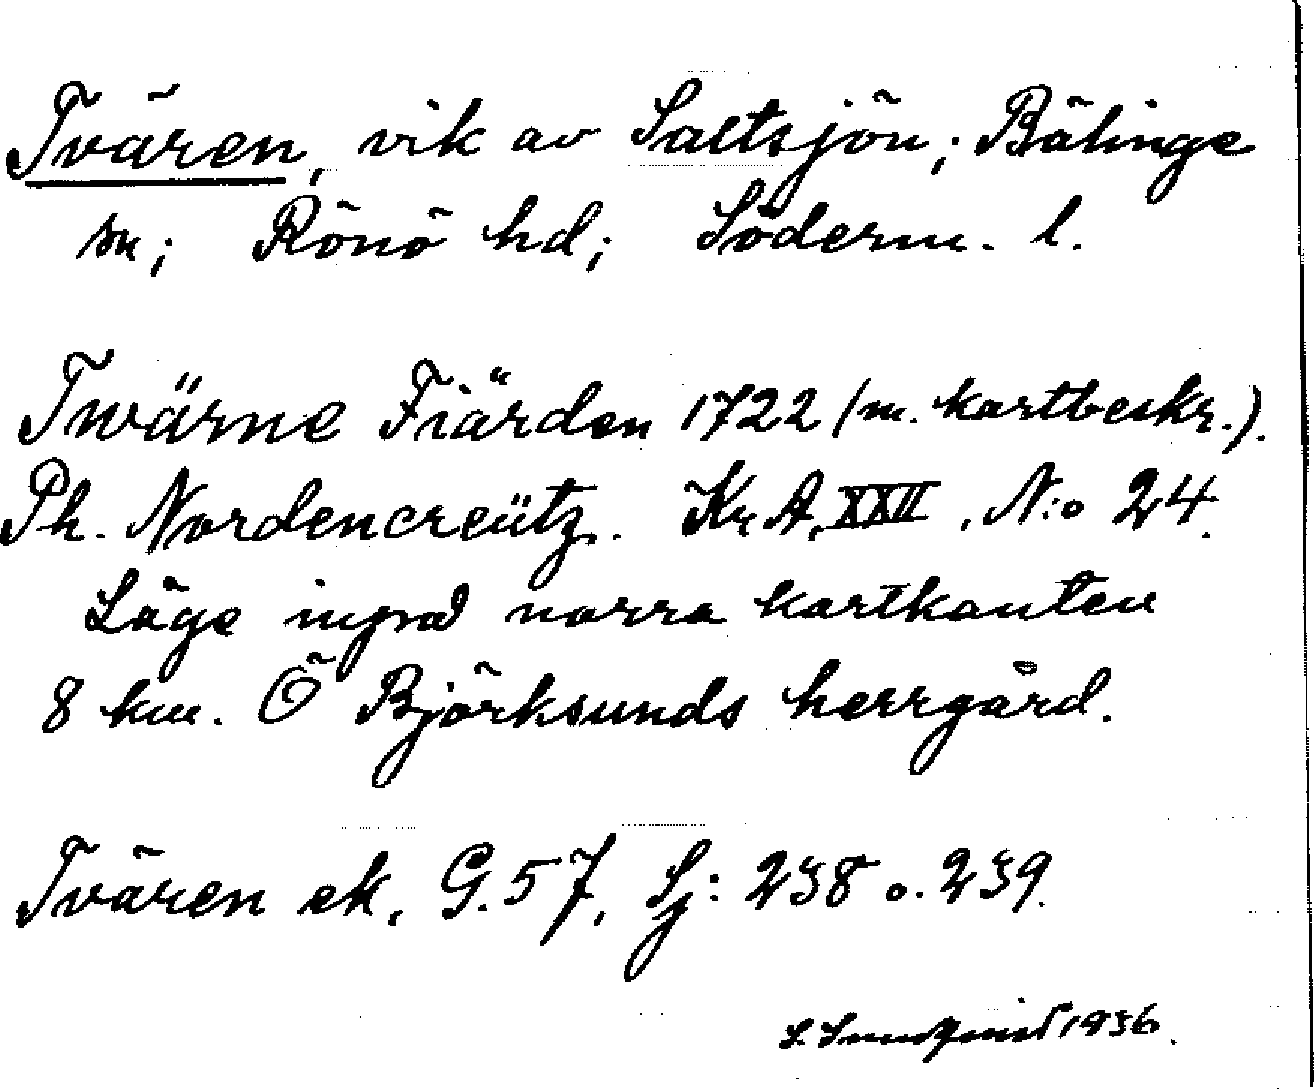 Tvären, vik av Saltsjön; Bälinge
sn; Rönö hd; Söderm. l.
Twärne Fiärden 1722 (m. kartbeskr.).
Ph. Nordencreütz. Kr. A. XXII, N:o 24.
Läge invid norra kartkanten
8 km. Ö Björksunds herrgård.
Tvären ek. G. 57, Sj: 238 o. 239.
S. Sundqvist 1936.